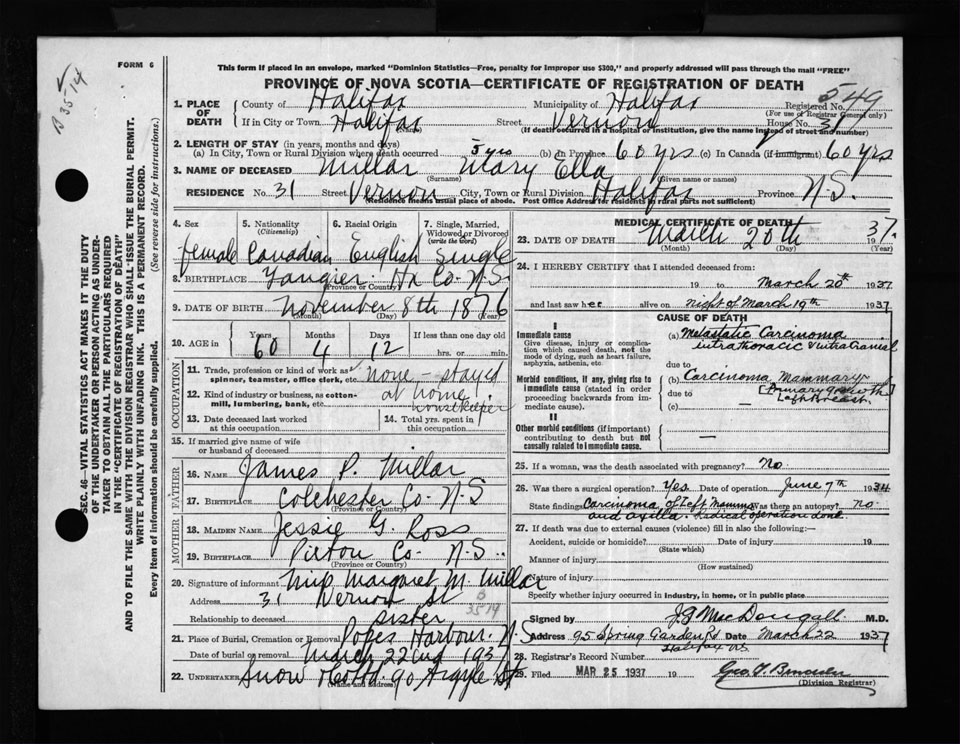 FORM 6
B 3514
This form if placed in an envelope, marked "Dominion Statistics—Free, penalty for improper use $300," and properly addressed will pass through the mail "FREE"
PROVINCE OF NOVA SCOTIA—CERTIFICATE OF REGISTRATION OF DEATH
1. PLACE OF DEATH County of Halifax Municipality of Halifax Registered No. 549
(For use of Registrar General only)
If in City or Town Halifax Street Vernon House No. 31
(Name) (If death occurred in a hospital or institution, give the name instead of street and number)
2. LENGTH OF STAY (in years, months and days)
(a) In City, Town or Rural Division where death occurred 5 yrs (b) In Province 60 yrs (c) In Canada (if immigrant) 60 yrs
3. NAME OF DECEASED Millar Mary Ella
(Surname) (Given name or names)
RESIDENCE No. 31 Street Vernon City, Town or Rural Division Halifax Province N.S.
(Residence means usual place of abode. Post Office Address for residents in rural parts not sufficient)
4. Sex 5. Nationality (Citizenship) 6. Racial Origin 7. Single, Married, Widowed or Divorced (write the word)
female Canadian English Single
8. BIRTHPLACE Tangier Hx Co. N.S.
(Province or Country)
9. DATE OF BIRTH November 8th 1876
(Month) (Day) (Year)
10. AGE in Years Months Days If less than one day old
60 4 12 hrs. or min.
OCCUPATION
11. Trade, profession or kind of work as spinner, teamster, office clerk, etc. none - stayed
12. Kind of industry or business, as cotton-mill, lumbering, bank, etc. at home.
housekeeper
13. Date deceased last worked at this occupation 14. Total yrs. spent in this occupation
15. If married give name of wife or husband of deceased
FATHER
16. NAME James P. Millar
17. BIRTHPLACE Colchester Co. N.S
(Province or Country)
MOTHER
18. MAIDEN NAME Jessie G. Ross
19. BIRTHPLACE Pictou Co. N.S.
(Province or Country)
20. Signature of informant Miss Margaret M. Millar
Address 31 Vernon St
B 3514
Relationship to deceased Sister
21. Place of Burial, Cremation or Removal Popes Harbour N.S
Date of burial or removal March 22nd 1937
22. UNDERTAKER Snow 90 Argyle St
(Name and address)
MEDICAL CERTIFICATE OF DEATH
23. DATE OF DEATH March 20th 1937.
(Month) (Day) (Year)
24. I HEREBY CERTIFY that I attended deceased from
19 to March 20th 1937
and last saw her alive on night of March 19th 1937
CAUSE OF DEATH
I
Immediate cause
Give disease, injury or complication which caused death, not the mode of dying, such as heart failure, asphyxia, asthenia, etc.
(a) Metastatic Carcinoma
intrathoracic & intracranial
due to
Morbid conditions, if any, giving rise to immediate cause (stated in order proceeding backwards from immediate cause).
(b) Carcinoma Mammary
due to [Primary growth
Left breast.
(c) —
II
Other morbid conditions (if important) contributing to death but not causally related to immediate cause.
—
25. If a woman, was the death associated with pregnancy? No.
26. Was there a surgical operation? Yes. Date of operation June 7th 1934
State findings Carcinoma of left Mamma Was there an autopsy? no.
and axilla. Radical operation done
27. If death was due to external causes (violence) fill in also the following:—
Accident, suicide or homicide? Date of injury 19
(State which)
Manner of injury
(How sustained)
Nature of injury
Specify whether injury occurred in industry, in home, or in public place
Signed by J.G. MacDougall. M.D.
Address 95 Spring Garden Rd Date March 22 1937
Halifax NS
28. Registrar's Record Number
29. Filed MAR 25 1937
(Division Registrar)
SEC. 46—VITAL STATISTICS ACT MAKES IT THE DUTY
OF THE UNDERTAKER OR PERSON ACTING AS UNDER-
TAKER TO OBTAIN ALL THE PARTICULARS REQUIRED
IN THE "CERTIFICATE OF REGISTRATION OF DEATH"
AND TO FILE THE SAME WITH THE DIVISION REGISTRAR WHO SHALL ISSUE THE BURIAL PERMIT.
WRITE PLAINLY WITH UNFADING INK. THIS IS A PERMANENT RECORD.
Every item of information should be carefully supplied. (See reverse side for instructions.)